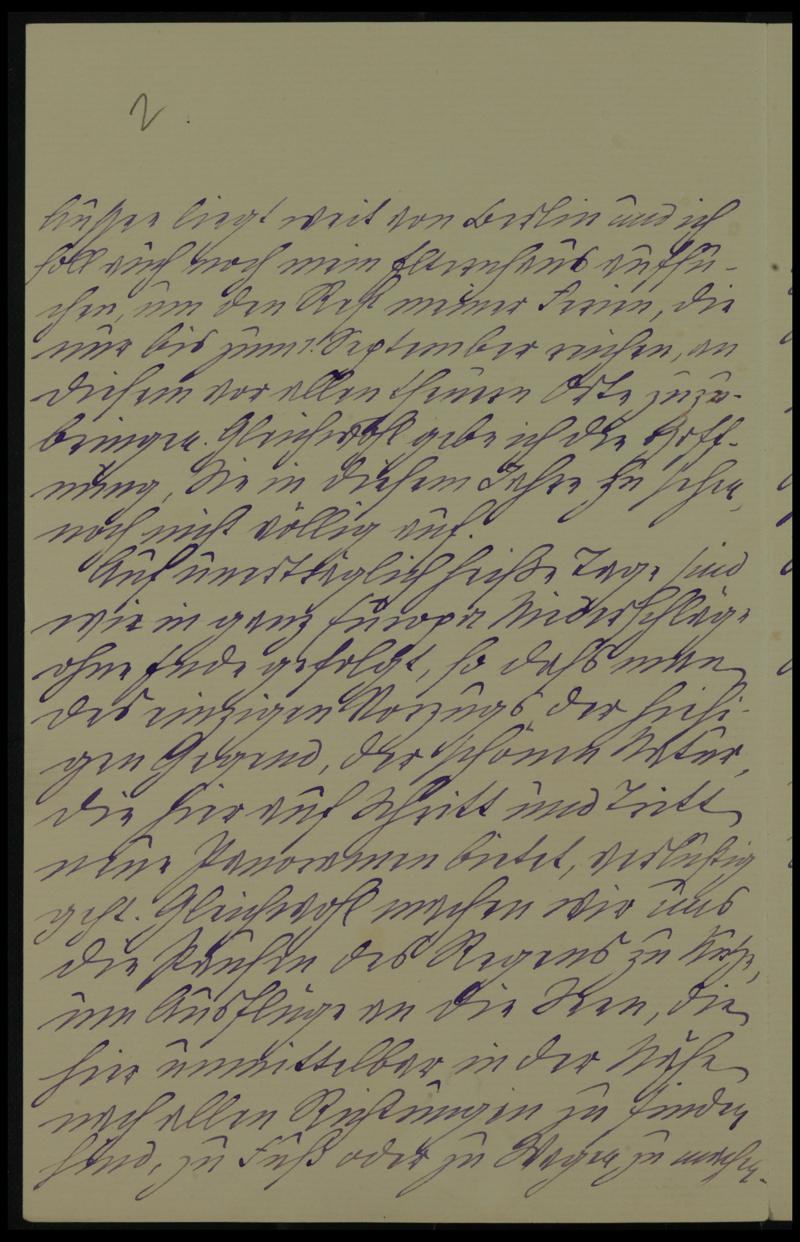 2.
Aussee liegt weit von Berlin und ich
soll auch noch mein Elternhaus aufsu-
chen, um den Rest meiner Ferien, die
nur bis zum 1. September reichen, an
diesem vor allen theuren Orte zuzu-
bringen. Gleichwohl gebe ich die Hoff-
nung, Sie in diesem Jahre zu sehen,
noch nicht völlig auf.
Auf unerträglich heiße Tage sind
wie in ganz Europa Niederschläge
ohne Ende gefolgt, so daß man
des einzigen Vorzugs der hiesi-
gen Gegend, der schönen Natur,
die hier auf Schritt und Tritt
neue Panoramen bietet, verlustig
geht. Gleichwohl machen wir uns
die Pausen des Regens zu Nutze,
um Ausflüge an die Seen, die
hier unmittelbar in der Nähe
nach allen Richtungen zu finden
sind, zu Fuß oder zu Wagen zu machen.